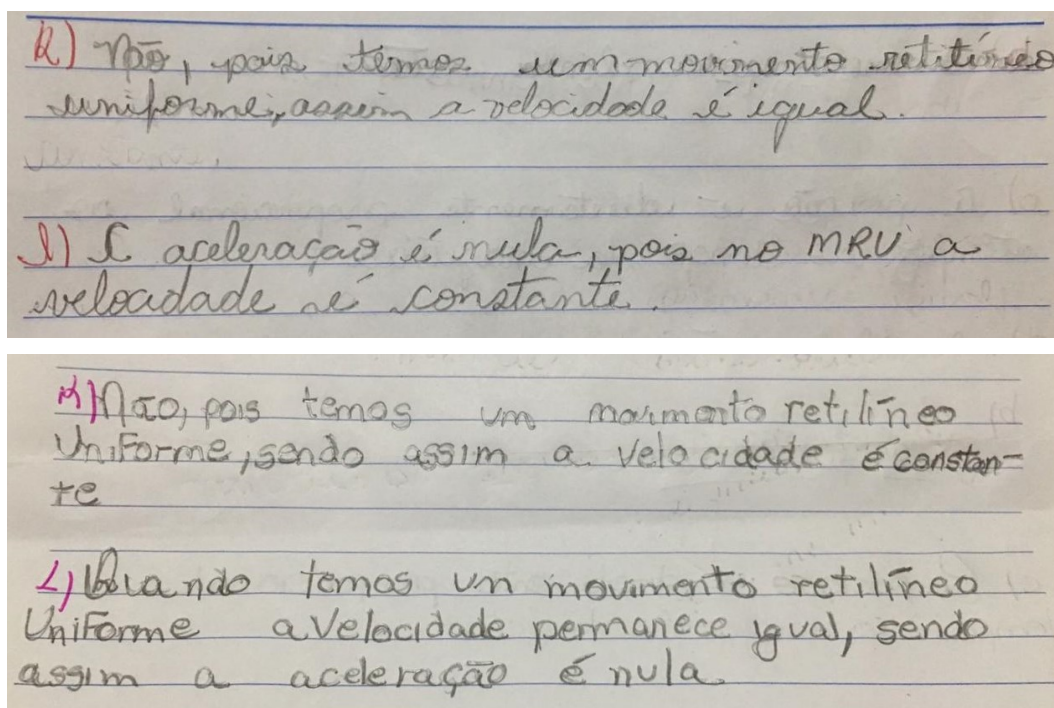 k) Não, pois temos um movimento retilíneo
uniforme, assim a velocidade é igual.
l) A aceleração é nula, pois no MRU a
velocidade é constante.
K) Não, pois temos um movimento retilíneo
Uniforme, sendo assim a velocidade é constan-
te
L) Quando temos um movimento retilíneo
Uniforme a velocidade permanece igual, sendo
assim a aceleração é nula.